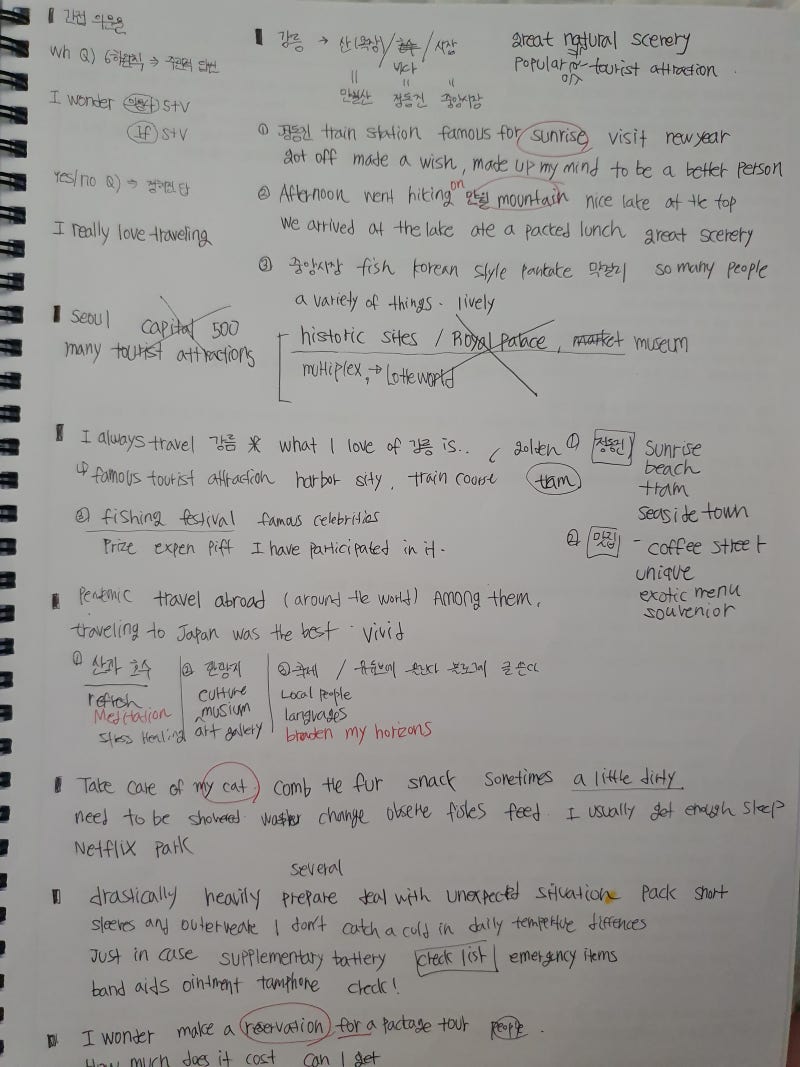 간접 의문문
Wh Q) 6하원칙 ⇒ 주관적 답변
I wonder 의문사 S+V
If S+V
Yes/no Q) ⇒ 정해진 답
I really love traveling
강릉 → 산(옥상)/호수/시장
바다
안월산 정동진 중앙시장
great natural scenery
popular tourist attraction
① 정동진 train station famous for sunrise visit new year
got off made a wish, made up my mind to be a better person
② Afternoon went hiking on 만월 mountain nice lake at the top
We arrived at the lake ate a packed lunch great scenery
③ 중앙시장 fish Korean style pankake 막걸리 so many people
a variety of things. lively
Seoul capital 500
many tourist attractions
historic sites / Royal palace, market museum
multiplex, → Lotte world
I always travel 강릉 what I love of 강릉 is.. golden
① famous tourist attraction harbor sity, train course tram
② fishing festival famous celebrities
Prize expen pift I have participated in it.
① 정동진 sunrise
beach
tram
seaside town
② 맛집 - coffee street
unique
exotic menu
souvenior
Pendemic travel abroad (around the world) Among them,
traveling to Japan was the best. vivid
① 산과 호수
refresh
Meditation
stress Healing
② 관광지
culture
musium
art gallery
③ 축제 /
Local people
languages
broaden my horizons
Take care of my cat. comb the fur snack sometimes a little dirty
need to be showered water change observe feed. I usually get enough sleep
Netflix park
several
drastically heavily prepare deal with unexpected situation pack short
sleeves and outerweare I don't catch a cold in daily temperture diffences
Just in case supplementary battery check list emergency items
band aids ointment check!
I wonder make a reservation for a package tour people.
How much does it cost can I get